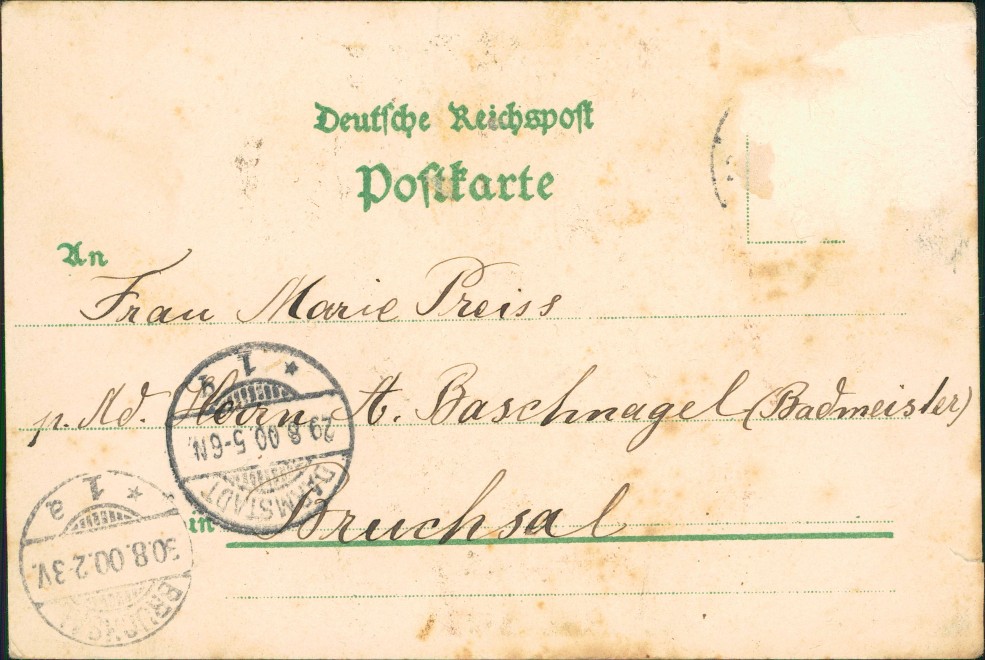 Deutsche Reichspost
Postkarte
An
Frau Marie Preiss
p. Ad. Herrn A. Baschnagel (Badmeister)
in Bruchsal
DARMSTADT
29.8.00.5-6N.
* 1
BRUCHSAL
30.8.00.2-3V.
* 1 a